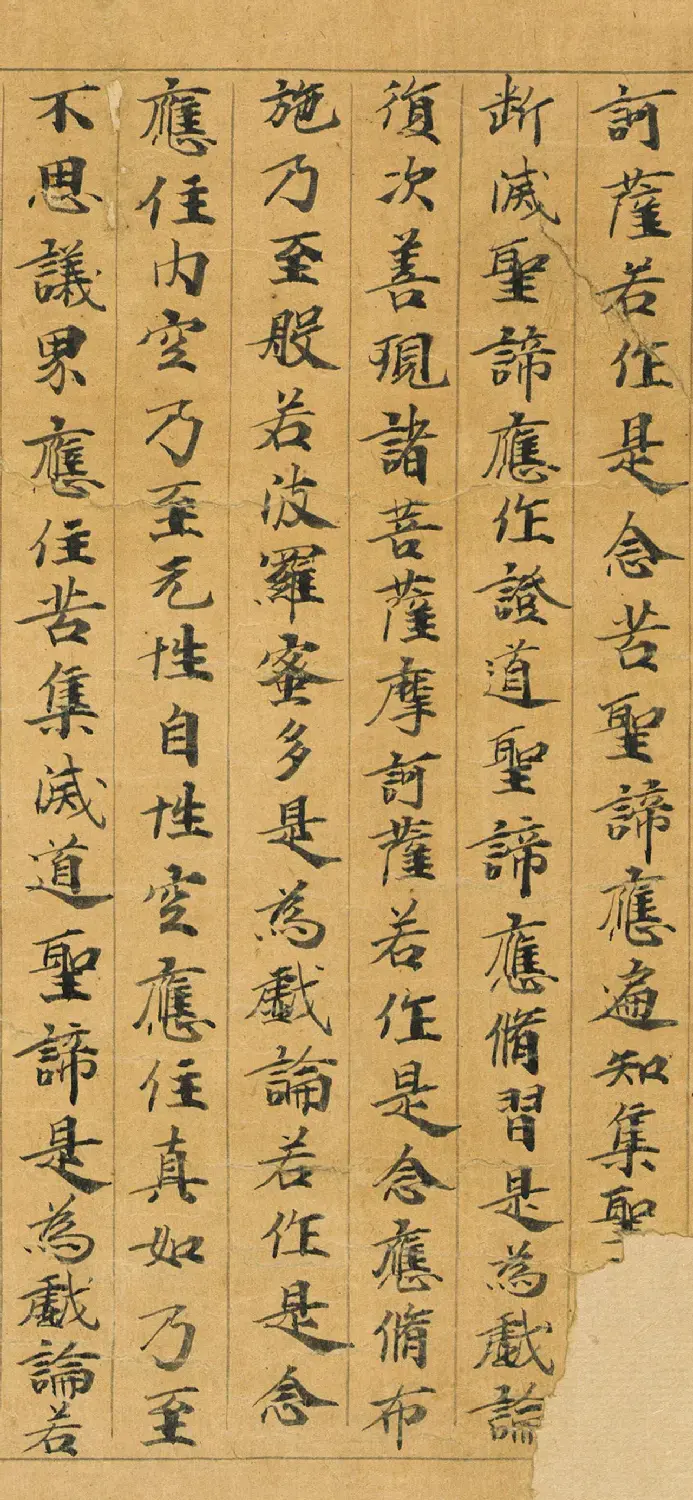 訶薩若作是念苦聖諦應遍知集聖
断滅聖諦應作證道聖諦應脩習是為戱論
復次善現諸菩薩摩訶薩若作是念應脩布
施乃至般若波羅蜜多是為戱論若作是念
應住内空乃至无性自性空應住真如乃至
不思議界應住苦集滅道聖諦是為戱論若